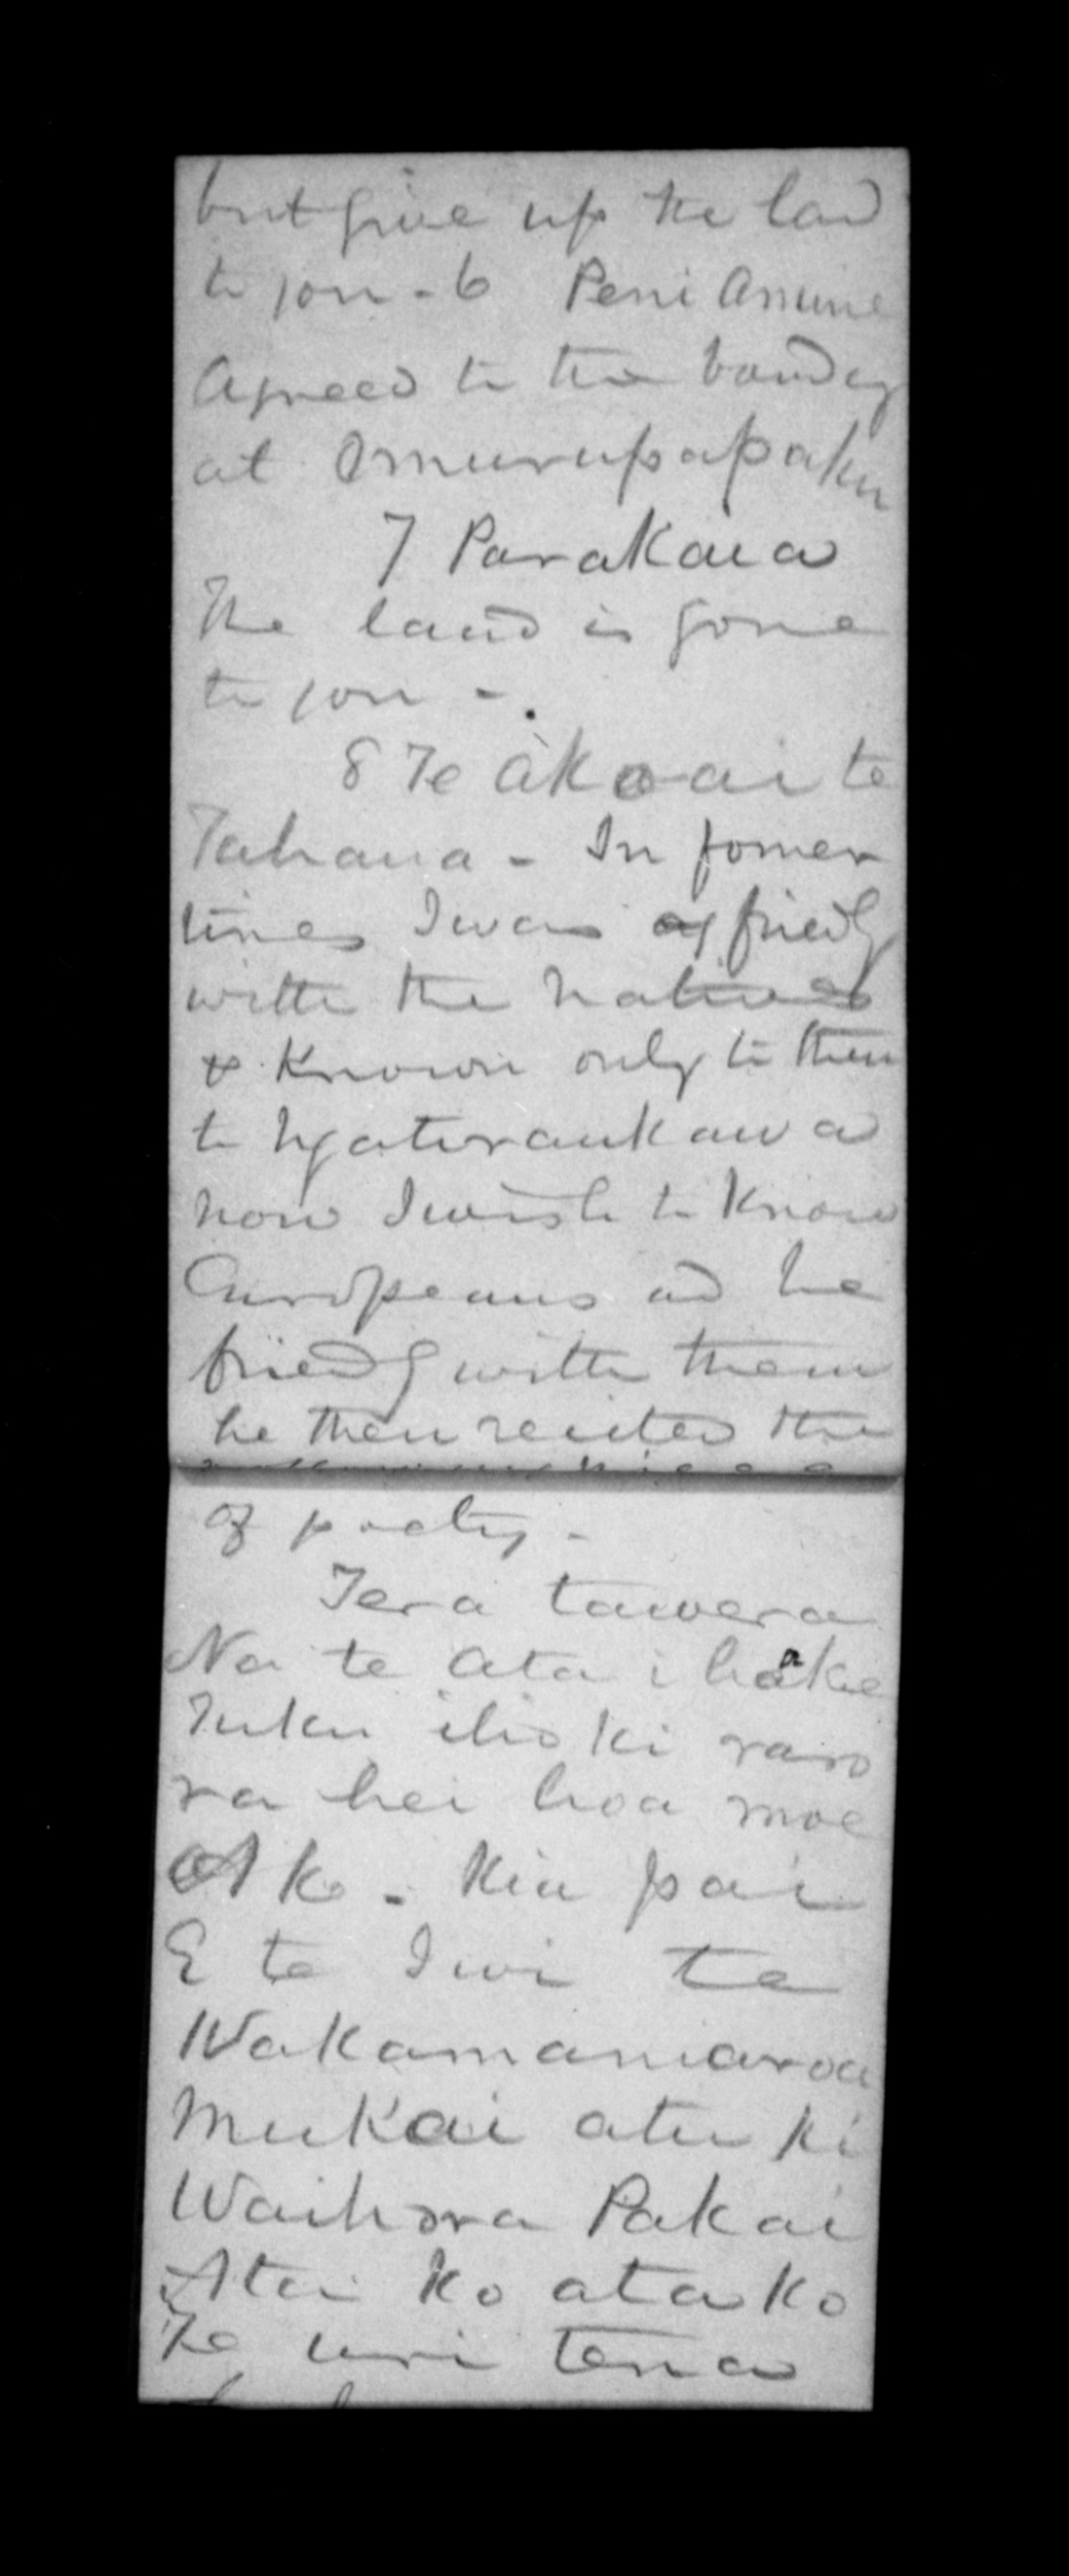 but give up the land
to you - 6 Peni Amine
Agreed to the bounday
at Omurupapaku
7 Parakaia
The land is gone
to you -.
8 Te Akoai te
Tahana - In former
times I was friendly
with the natives
& known only to them
to Ngatiraukawa
now I wish to know
Europeans and be
friendly with them
he then recited the
of poetry -
Tera tawera
Na te ata i haake
Tuku iho ki raro
ra hei hoa moe
Ak - Kia pai
E te Iwi te
Wakamamaroa
Mukai atu ki
Waihora Pakai
Atai ko ata ko
Te uri tena